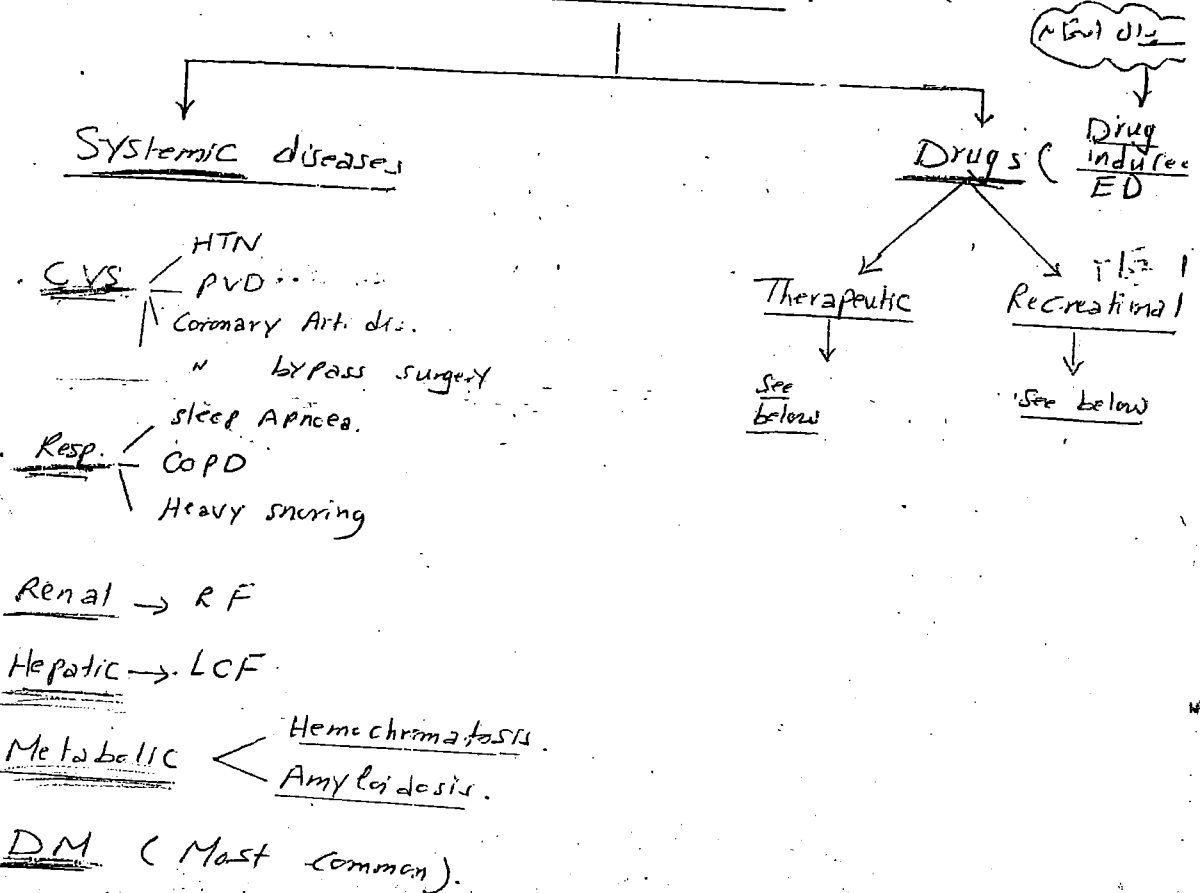 Systemic diseases
CVS
HTN
PVD
Coronary Art. dis.
" bypass surgery
Resp.
sleep Apnoea.
COPD
Heavy snoring
Renal → RF
Hepatic → LCF
Metabolic
Hemochromatosis.
Amyloidosis.
DM (Most common).
Drugs (
Drug
induced
ED
Therapeutic
See
below
Recreational
See below